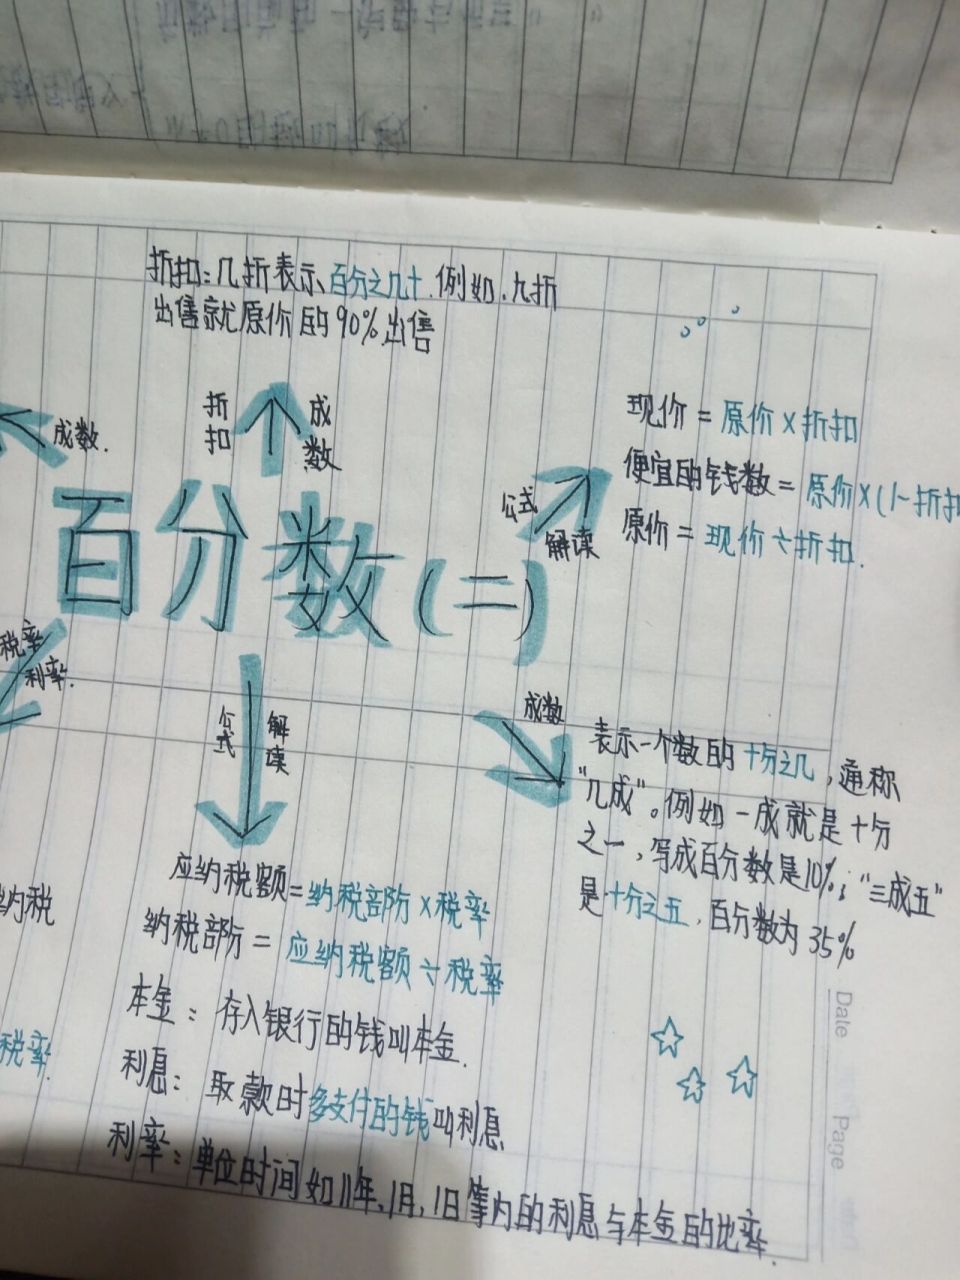 折扣：几折表示百分之几十.例如.九折
出售就原价的90%出售
成数.
折扣
成数
公式
解读
现价=原价×折扣
便宜的钱数=原价×(1-折扣
原价=现价÷折扣.
百分数(二)
税率
利率.
公式
解读
成数
表示一个数的十分之几,通称
"几成"。例如一成就是十分
之一,写成百分数是10%;"三成五"
是十分之五,百分数为35%
应纳税额=纳税部份×税率
纳税部份=应纳税额÷税率
纳税
本金：存入银行的钱叫本金.
税率.
利息：取款时多支付的钱叫利息
利率：单位时间如11年,1月,1日等内的利息与本金的比率.
Date
Page